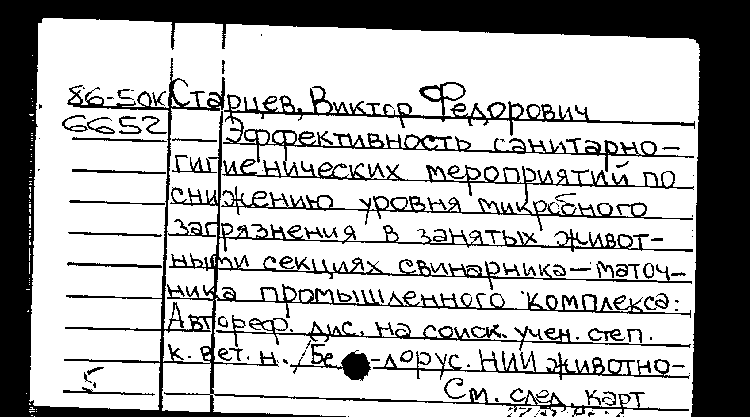 86-50к Старцев, Виктор Федорович
6652 Эффективность санитарно-
гигиенических мероприятий по
снижению уровня микробного
загрязнения в занятых живот-
ными секциях свинарника-маточ-
ника промышленного комплекса:
Автореф. дис. на соиск. учен. степ.
к. вет. н. / Бе -лорус. НИИ животно-
5 См. след. карт